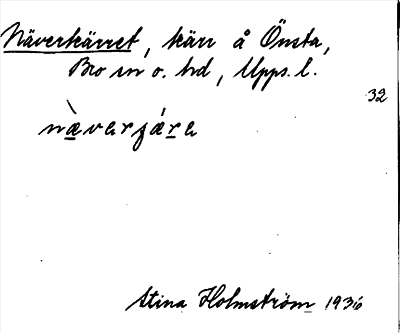 Näverkärret, kärr å Önsta,
Bro sn o. hd, Upps. l.
32
Stina Holmström 1936